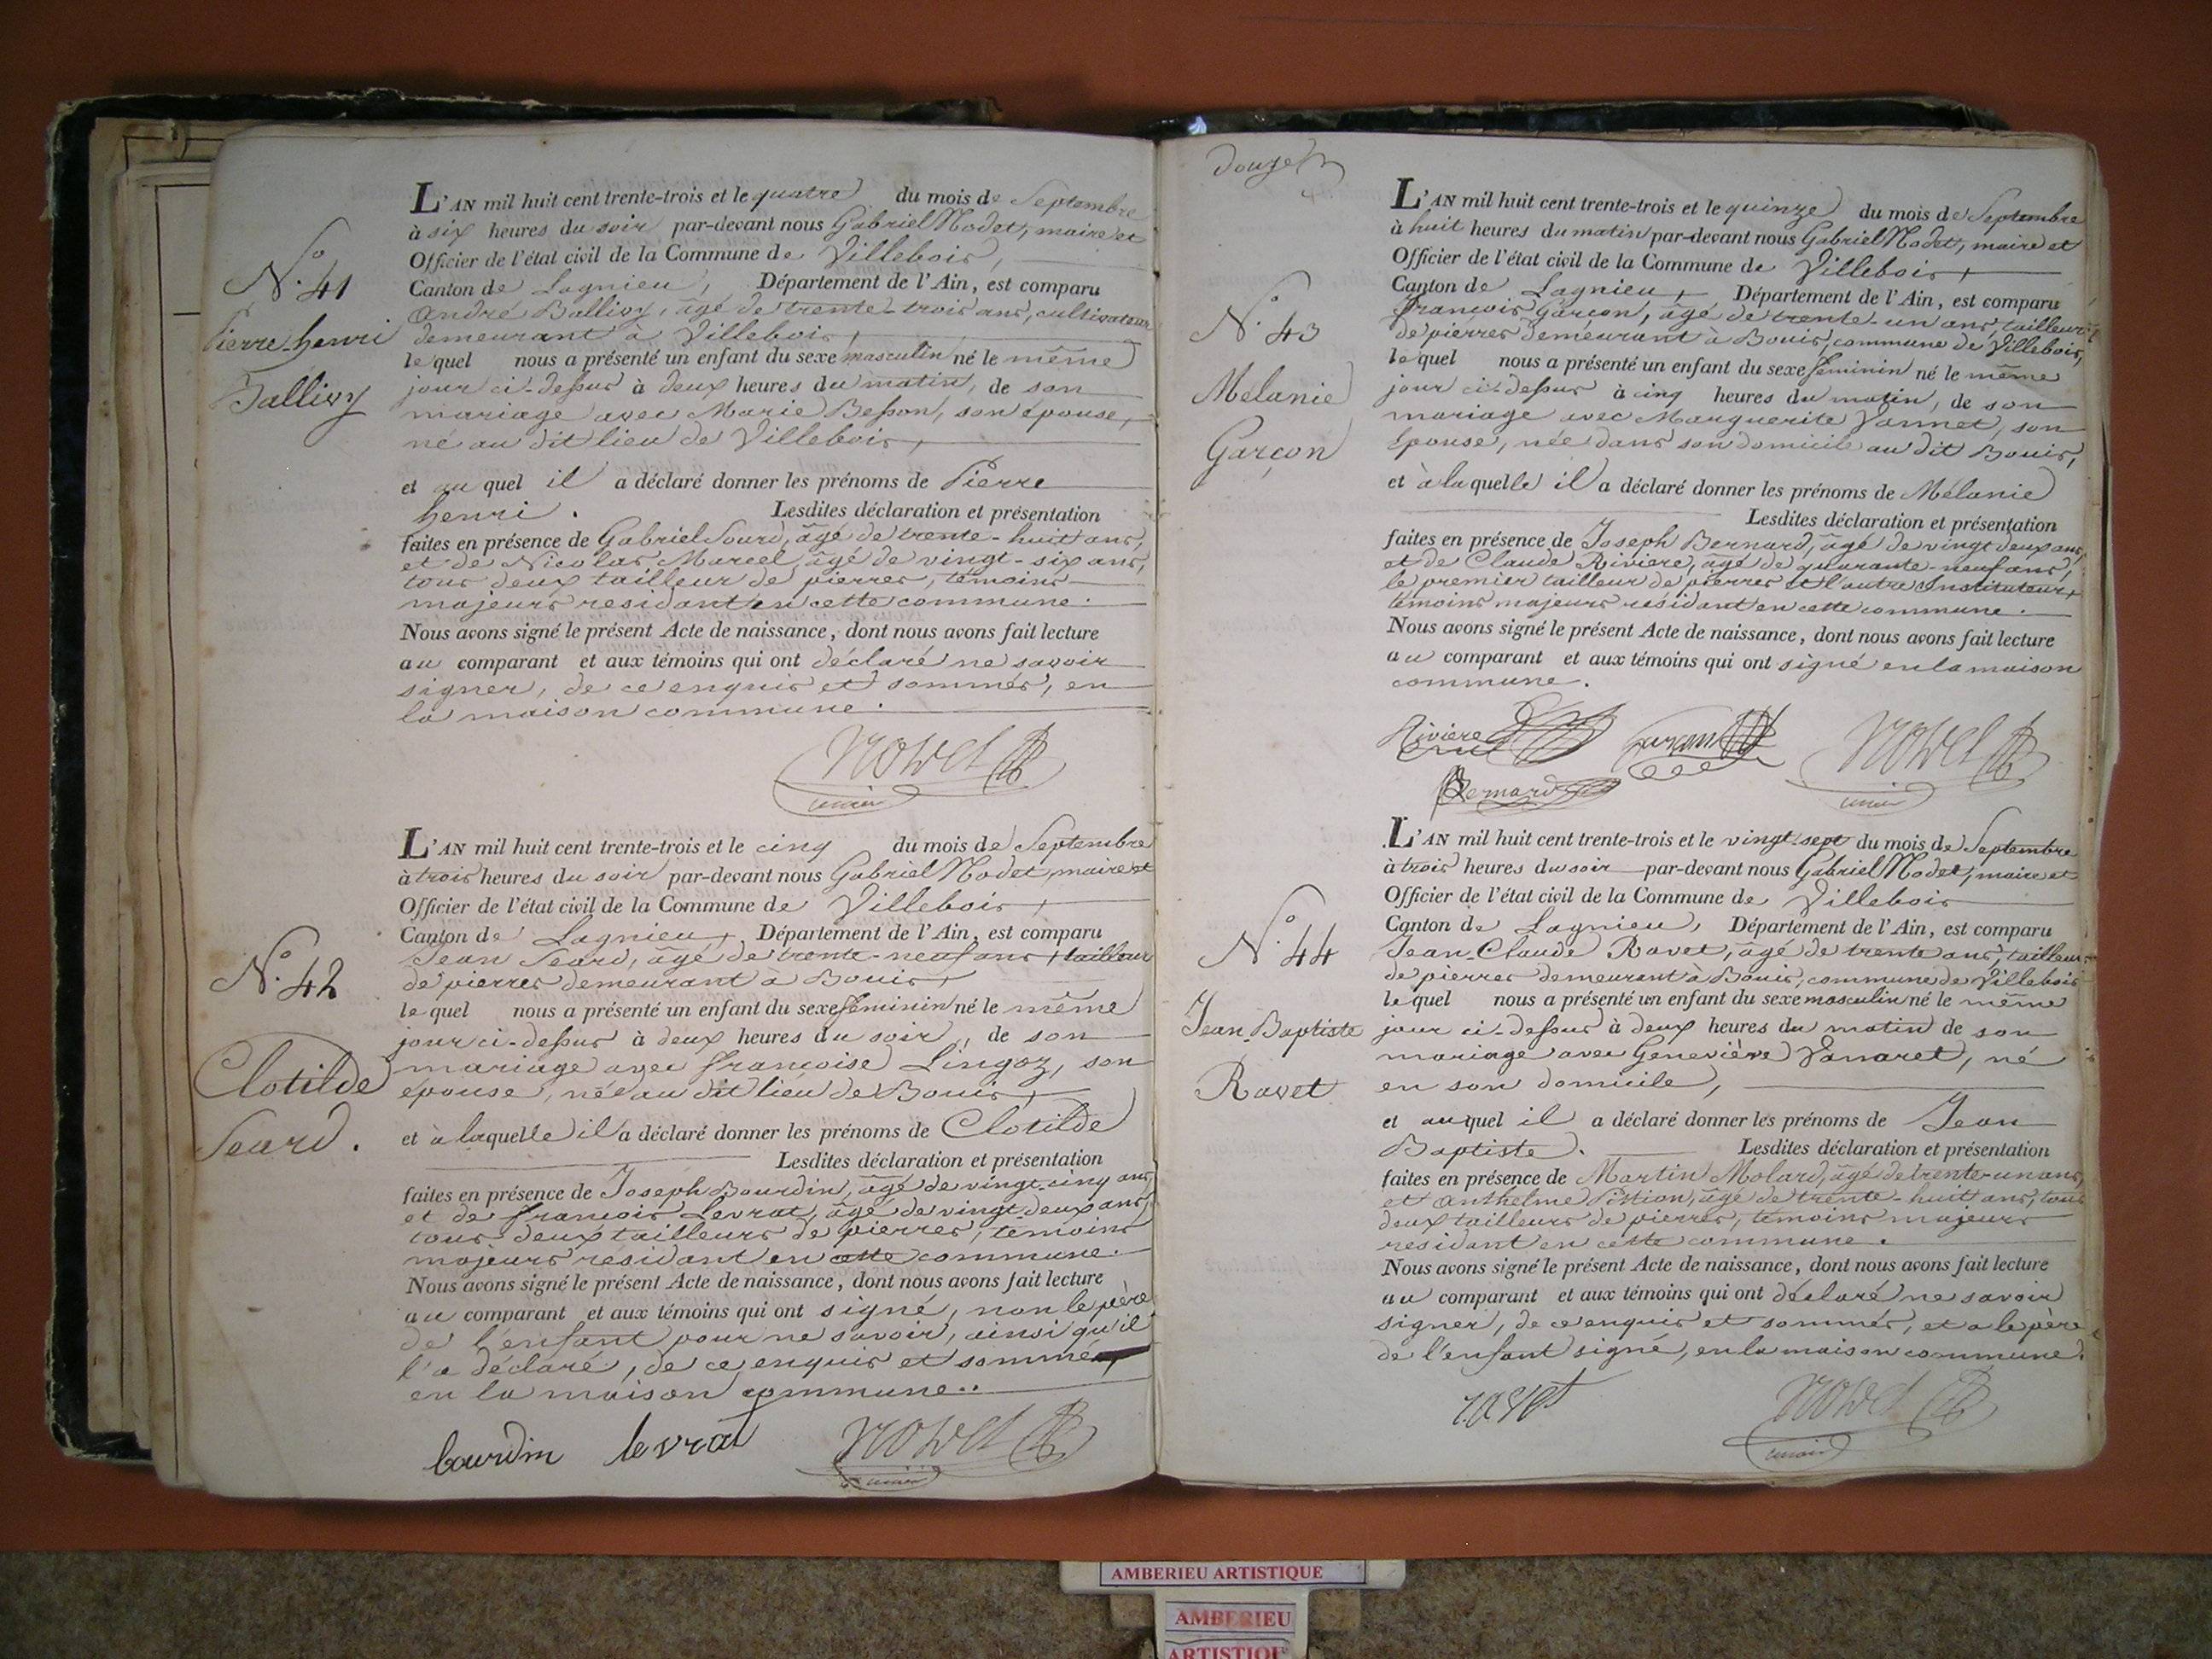 L'AN mil huit cent trente-trois et le quatre du mois de Septembre
à six heures du soir par-devant nous Gabriel Nodet, maire et
Officier de l'état civil de la Commune de Villebois,
N.o 41
Canton de Lagnieu, Département de l'Ain, est comparu
André Ballivy, âgé de trente-trois ans, cultivateur
Pierre-henri
demeurant à Villebois,
le quel nous a présenté un enfant du sexe masculin né le même
Ballivy
jour ci-dessus à deux heures du matin, de son
mariage avec Marie Besson, son épouse,
né au dit lieu de Villebois,
et au quel il a déclaré donner les prénoms de Pierre
henri. Lesdites déclaration et présentation
faites en présence de Gabriel Sourd, âgé de trente-huit ans,
et de Nicolas Marcel, âgé de vingt-six ans,
tous deux tailleur de pierres, témoins
majeurs residant en cette commune.
Nous avons signé le présent Acte de naissance, dont nous avons fait lecture
au comparant et aux témoins qui ont déclaré ne savoir
signer, de ce enquis et sommés, en
la maison commune.
maire
L'AN mil huit cent trente-trois et le cinq du mois de Septembre
à trois heures du soir par-devant nous Gabriel Nodet, maire et
Officier de l'état civil de la Commune de Villebois,
Canton de Lagnieu, Département de l'Ain, est comparu
Jean Seard, âgé de trente-neuf ans, tailleur
N.o 42
de pierres demeurant à Bouis,
le quel nous a présenté un enfant du sexe féminin né le même
jour ci-dessus à deux heures du soir, de son
Clotilde
mariage avec françoise Lingoz, son
épouse, née au dit lieu de Bouis,
Seard.
et à la quelle il a déclaré donner les prénoms de Clotilde
Lesdites déclaration et présentation
faites en présence de Joseph Bourdin, âgé de vingt-cinq ans,
et de françois Levrat, âgé de vingt-deux ans,
tous deux tailleurs de pierres, témoins
majeurs résidant en cette commune.
Nous avons signé le présent Acte de naissance, dont nous avons fait lecture
au comparant et aux témoins qui ont signé, non le père
de l'enfant pour ne savoir, ainsi qu'il
l'a déclaré, de ce enquis et sommé,
en la maison commune..
bourdin levrat
maire
douze
L'AN mil huit cent trente-trois et le quinze du mois de Septembre
à huit heures du matin par-devant nous Gabriel Nodet, maire et
Officier de l'état civil de la Commune de Villebois,
Canton de Lagnieu, Département de l'Ain, est comparu
N.o 43
françois Garçon, âgé de trente-un ans, tailleur
de pierres demeurant à Bouis, commune de Villebois,
le quel nous a présenté un enfant du sexe féminin né le même
Mélanie
jour ci-dessus à cinq heures du matin, de son
mariage avec Marguerite Vannet, son
Garçon
épouse, née dans son domicile au dit Bouis,
et à la quelle il a déclaré donner les prénoms de Mélanie
Lesdites déclaration et présentation
faites en présence de Joseph Bernard, âgé de vingt deux ans,
et de Claude Riviere, âgé de quarante-neuf ans,
le premier tailleur de pierres et l'autre Instituteur,
témoins majeurs résidant en cette commune.
Nous avons signé le présent Acte de naissance, dont nous avons fait lecture
au comparant et aux témoins qui ont signé en la maison
commune.
Riviere
Bernard
maire
L'AN mil huit cent trente-trois et le vingt-sept du mois de Septembre
à trois heures du soir par-devant nous Gabriel Nodet, maire et
Officier de l'état civil de la Commune de Villebois
Canton de Lagnieu, Département de l'Ain, est comparu
N.o 44
Jean-Claude Ravet, âgé de trente ans, tailleur
de pierres demeurant à Bouis, commune de Villebois
le quel nous a présenté un enfant du sexe masculin né le même
Jean-Baptiste
jour ci-dessus à deux heures du matin de son
mariage avec Geneviève Vanaret, né
Ravet
en son domicile,
et au quel il a déclaré donner les prénoms de Jean
Baptiste. Lesdites déclaration et présentation
faites en présence de Martin Molard, âgé de trente-un ans,
et anthelme Pittion, âgé de trente-huit ans, tous
deux tailleurs de pierres, témoins majeurs
residant en cette commune.
Nous avons signé le présent Acte de naissance, dont nous avons fait lecture
au comparant et aux témoins qui ont déclaré ne savoir
signer, de ce enquis et sommés, et a le père
de l'enfant signé, en la maison commune.
ravet
maire
AMBERIEU ARTISTIQUE
AMBERIEU
ARTISTIQU